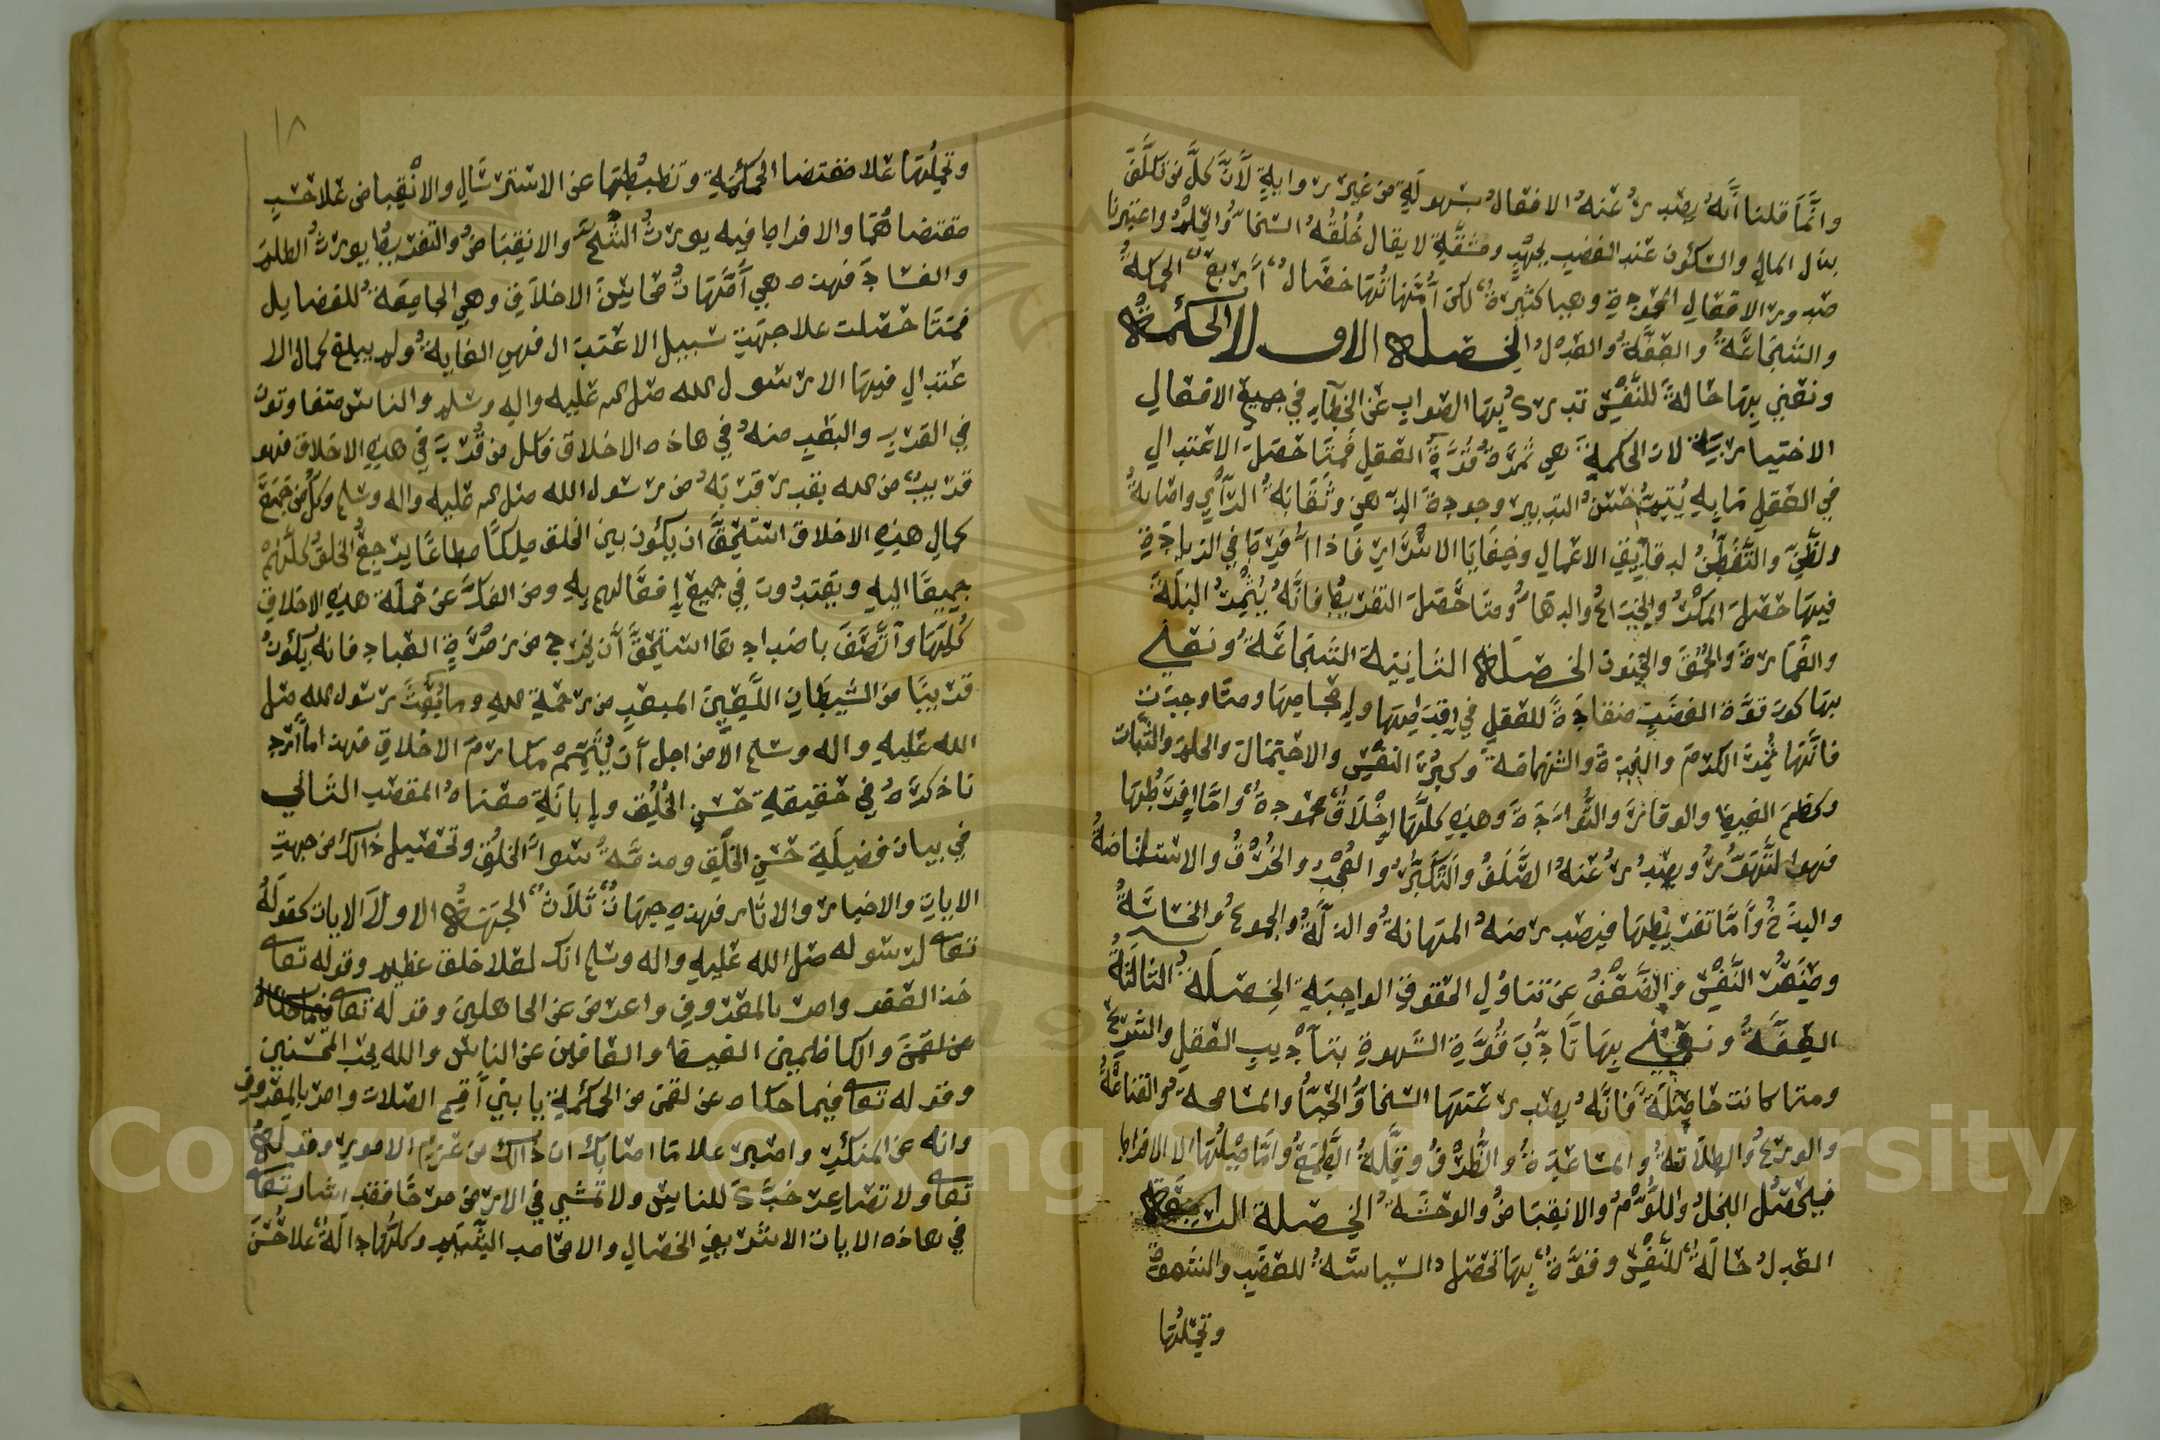 وانما قلنا انه يصدر عنه الافعال بسهولة من غير روابية لان كل من تكلف
بذل المال والسكون عند الغضب بجهد ومشقة لا يقال خلقه السخا والحلم واعتبرنا
صدور الافعال المحمودة وهيا كثيرة لكن امهاتها خصال اربع الحكمة
والشجاعة والعفة والعدل الخصلة الاولا الحكمة
ونعني بها حالة للنفس تدرك بها الصواب عن الخطاء في جميع الافعال
الاختيارية لان الحكمة هي ثمرة قدرة العقل فمتا حصل الاعتدال
في العقل فانه يثمر حسن التدبير وجودة الذهن وثقابة الرأي واصابة
الظن والتفطن لدقايق الاعمال وخفايا الاشرار فاذا افرط في الزيادة
فيها حصل المكر والخداع والدها ومتا حصل التفريط فانه يثمر البله
والغمارة والحمق والجنون الخصلة الثانية الشجاعة ونعني
بها كون قوة الغضب منقادة للعقل في اقدامها واحجامها ومتا وجدت
فانها تثمر الكرم والنجدة والشهامة وكبر النفس والاحتمال والحلم والثبات
وكظم الغيظ والوقار والتوادة وهذه كلها اخلاق محمودة واما افراطها
فهو التهور ويصدر عنه الصلف والتكبر والعجب والخرق والاستشاطة
والبذخ واما تفريطها فيصدر منه المهانة والذلة والجوع والخساسة
وصغر النفس والضعف عن تناول الحقوق الواجبة الخصلة الثالثة
العفة ونعني بها تأدب قوة الشهوة بتأديب العقل والشرع
ومتا كانت حاصلة فانه يصدر عنها السخا والحيا والمسامحة والقناعة
والورع والطلاقة والمساعدة والظرف وقلة الطمع واما ميلها الى الافراط
فيحصل البخل واللؤم والانقباض والوحشة الخصلة الرابعة
العدل حالة للنفس وقوة بها تحصل السياسة للغضب والشهوة
وتحملها
١٨
وتحملها علا مقتضا الحكمة وتظبطها عن الاسترسال والانقباض علا حسب
مقتضاهما والافراط فيه يورث الشح والانقباض والتفريط يورث الظلم
والفساد فهذه هي امهات محاسن الاخلاق وهي الجامعة للفضايل
فمتا حصلت علا جهة سبيل الاعتدال فهي الغاية ولم يبلغ كمال الا
عتدال فيها الا رسول الله صلى الله عليه واله وسلم والناس متفاوتون
في القرب والبعد منه في هاذه الاخلاق فكل من قرب في هذه الاخلاق فهو
قريب من الله بقدر قربه من رسول الله صلى الله عليه واله وسلم وكل من جمع
كمال هذه الاخلاق استحق ان يكون بين الخلق ملكا مطاعا يرجع الخلق كلهم
جميعا اليه ويقتدون في جميع افعالهم به ومن انفك عن جملة هذه الاخلاق
كلها واتصف باضدادها استحق ان يخرج من زمرة العباد فانه يكون
قريبا من الشيطان اللعين المبعد من رحمة الله وما بعث رسول الله صلى
الله عليه واله وسلم الا من اجل ان يتمم مكارم الاخلاق فهذا ما ارد
نا ذكره في حقيقة حسن الخلق وابانة معناه المقصد الثاني
في بيان فضيلة حسن الخلق ومذمة سوا الخلق وتحصيل ذالك من جهت
الايات والاخبار والاثار فهذه جهات ثلاث الجهة الاولا الايات كقوله
تعالى لرسوله صلى الله عليه واله وسلم انك لعلا خلق عظيم وقوله تعالى
خذ العفو وامر بالمعروف واعرض عن الجاهلين وقوله تعالى فيما حكاه
عن لقمن والكاظمين الغيظ والعافين عن الناس والله يحب المحسنين
وقوله تعالى فيما حكاه عن لقمن من الحكمة يا بني اقم الصلات وامر بالمعروف
وانه عن المنكر واصبر علا ما اصابك ان ذالك من عزم الامور وقوله
تعالى ولا تصاعر خدك للناس ولا تمشي في الارض مرحا فقد اشار تعالى
في هاذه الايات الا شريف الخصال والا محامد الشيم وكلها دالة علا حسن